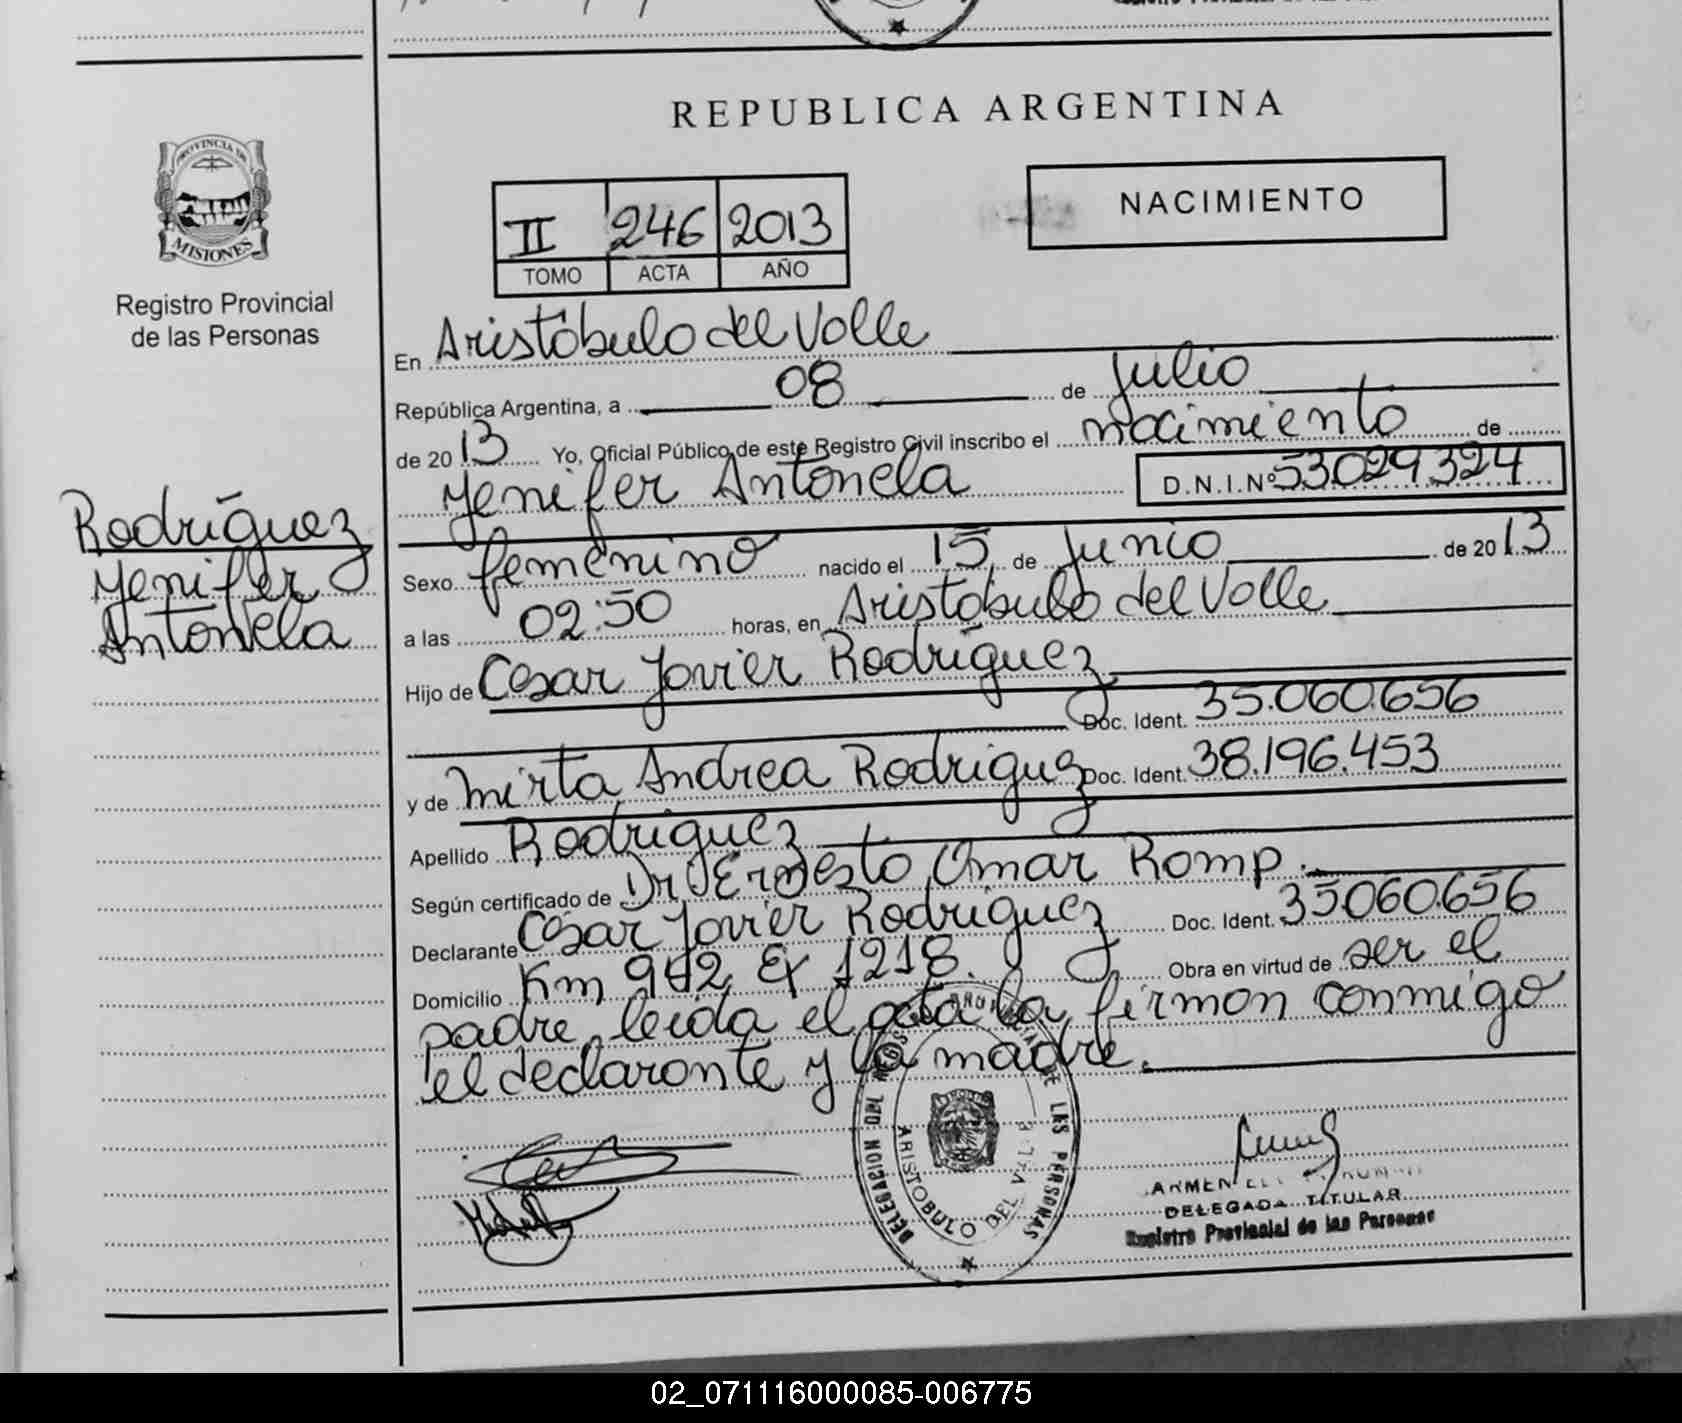 REPUBLICA ARGENTINA
PROVINCIA DE
MISIONES
Registro Provincial
de las Personas
II 246 2013
TOMO ACTA AÑO
NACIMIENTO
En Aristóbulo del Valle
República Argentina, a 08 de Julio
de 2013 Yo, Oficial Público de este Registro Civil inscribo el nacimiento de
Yenifer Antonela D.N.I.Nº 53.029.324
Rodríguez
Yenifer
Antonela
Sexo femenino nacido el 15 de Junio de 2013
a las 02:50 horas, en Aristóbulo del Valle
Hijo de Cesar Javier Rodríguez
Doc. Ident. 35.060.656
y de Mirta Andrea Rodriguez Doc. Ident. 38.196.453
Apellido Rodríguez
Según certificado de Dr Ernesto Omar Romp.
Declarante Cesar Javier Rodriguez Doc. Ident. 35.060.656
Domicilio Km 982 Ex 1218. Obra en virtud de ser el
padre, leida el acta la firman conmigo
el declarante y la madre.
DELEGACION DEL REGISTRO PROVINCIAL DE LAS PERSONAS
ARISTOBULO DEL VALLE
DELEGADA TITULAR
Registro Provincial de las Personas
02_071116000085-006775